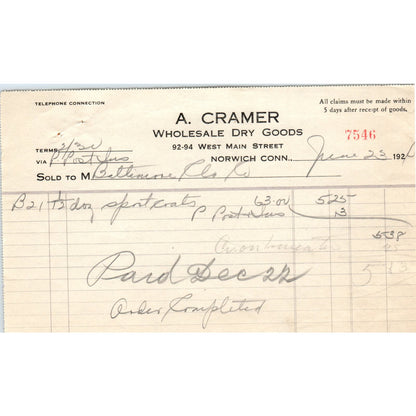 TELEPHONE CONNECTION
All claims must be made within
5 days after receipt of goods.
A. CRAMER
WHOLESALE DRY GOODS
7546
92-94 WEST MAIN STREET
TERMS 2/30
NORWICH CONN., June 23 192
VIA P Post Ins
SOLD TO M Baltimore Clo Co
B21 1/2 doz sport coats 63.00 5.25
P Post & Ins 13
5.38
Paid Dec 22
Order Completed